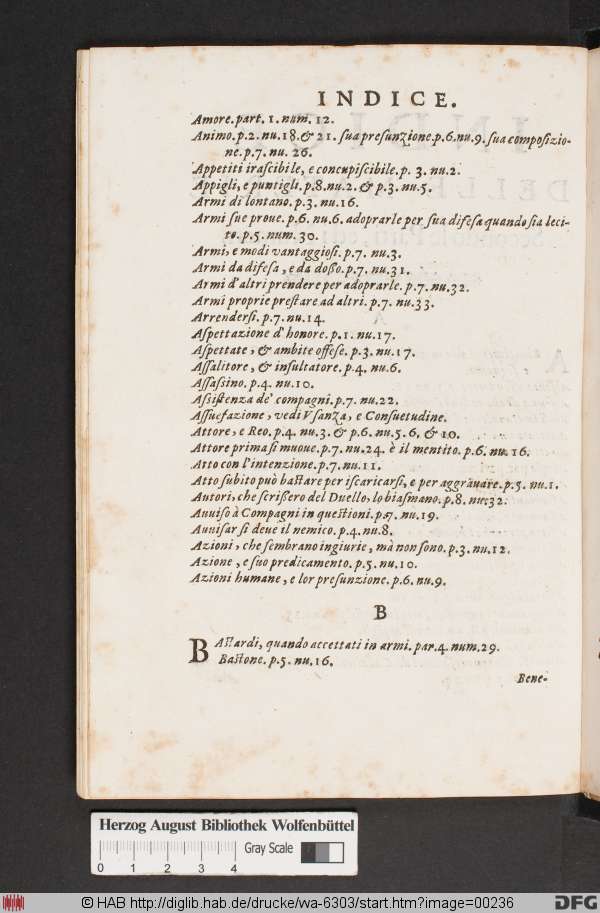 INDICE.
Amore. part. 1. num. 12.
Animo. p.2. nu. 18. & 21. sua presunzione. p.6. nu. 9. sua composizio-
ne. p.7. nu. 26.
Appetiti irascibile, e concupiscibile. p. 3. nu. 2.
Appigli, e puntigli. p.8. nu. 2. & p.3. nu. 5.
Armi di lontano. p.3. nu. 16.
Armi sue proue. p.6. nu. 6. adoprarle per sua difesa quando sia leci-
to. p.5. num. 30.
Armi, e modi vantaggiosi. p.7. nu. 3.
Armi da difesa, e da dosso. p.7. nu. 31.
Armi d'altri prendere per adoprarle. p.7. nu. 32.
Armi proprie prestare ad altri. p.7. nu. 33.
Arrendersi. p.7. nu. 14.
Aspettazione d'honore. p.1. nu. 17.
Aspettate, & ambite offese. p.3. nu. 17.
Assalitore, & insultatore. p.4. nu. 6.
Assassino. p.4. nu. 10.
Assistenza de' compagni. p.7. nu. 22.
Assuefazione, vedi Vsanza, e Consuetudine.
Attore, e Reo. p.4. nu. 3. & p.6. nu. 5. 6. & 10.
Attore prima si muoue. p.7. nu. 24. è il mentito. p.6. nu. 16.
Atto con l'intenzione. p.7. nu. 11.
Atto subito può bastare per iscaricarsi, e per aggrauare. p.5. nu. 1.
Autori, che scrissero del Duello, lo biasmano. p.8. nu. 32.
Auuiso à Compagni in questioni. p.7. nu. 19.
Auuisar si deue il nemico. p.4. nu. 8.
Azioni, che sembrano ingiurie, mà non sono. p.3. nu. 12.
Azione, e suo predicamento. p.5. nu. 10.
Azioni humane, e lor presunzione. p.6. nu. 9.
B
BAstardi, quando accettati in armi. par. 4. num. 29.
Bastone. p.5. nu. 16.
Bene-
Herzog August Bibliothek Wolfenbüttel
0 1 2 3 4 Gray Scale
© HAB http://diglib.hab.de/drucke/wa-6303/start.htm?image=00236
DFG